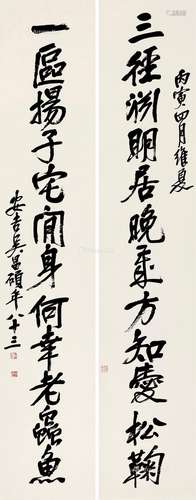 丙寅四月維夏
三徑淵明居晚歲方知愛松鞠
一區揚子宅閒身何幸老蟲魚
安吉吳昌碩年八十三